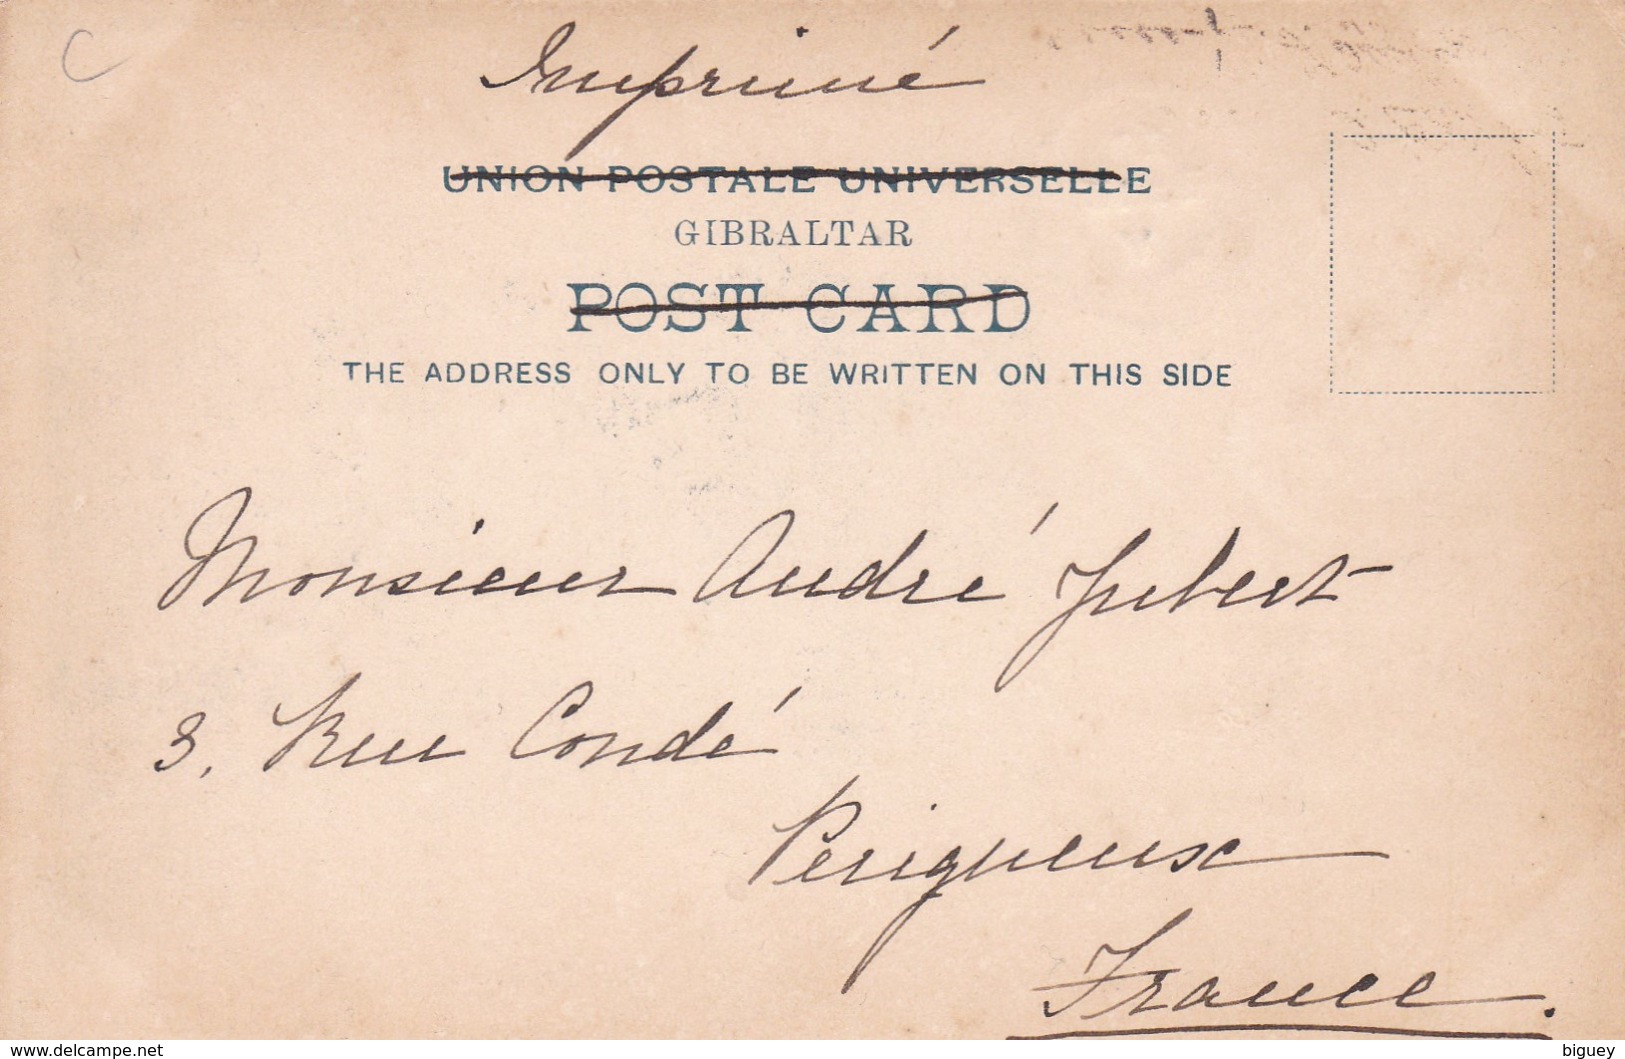 C
Imprimé
UNION POSTALE UNIVERSELLE
GIBRALTAR
POST CARD
THE ADDRESS ONLY TO BE WRITTEN ON THIS SIDE
Monsieur André Jubert
3, Rue Condé
Perigueux
France.
www.delcampe.net
biguey